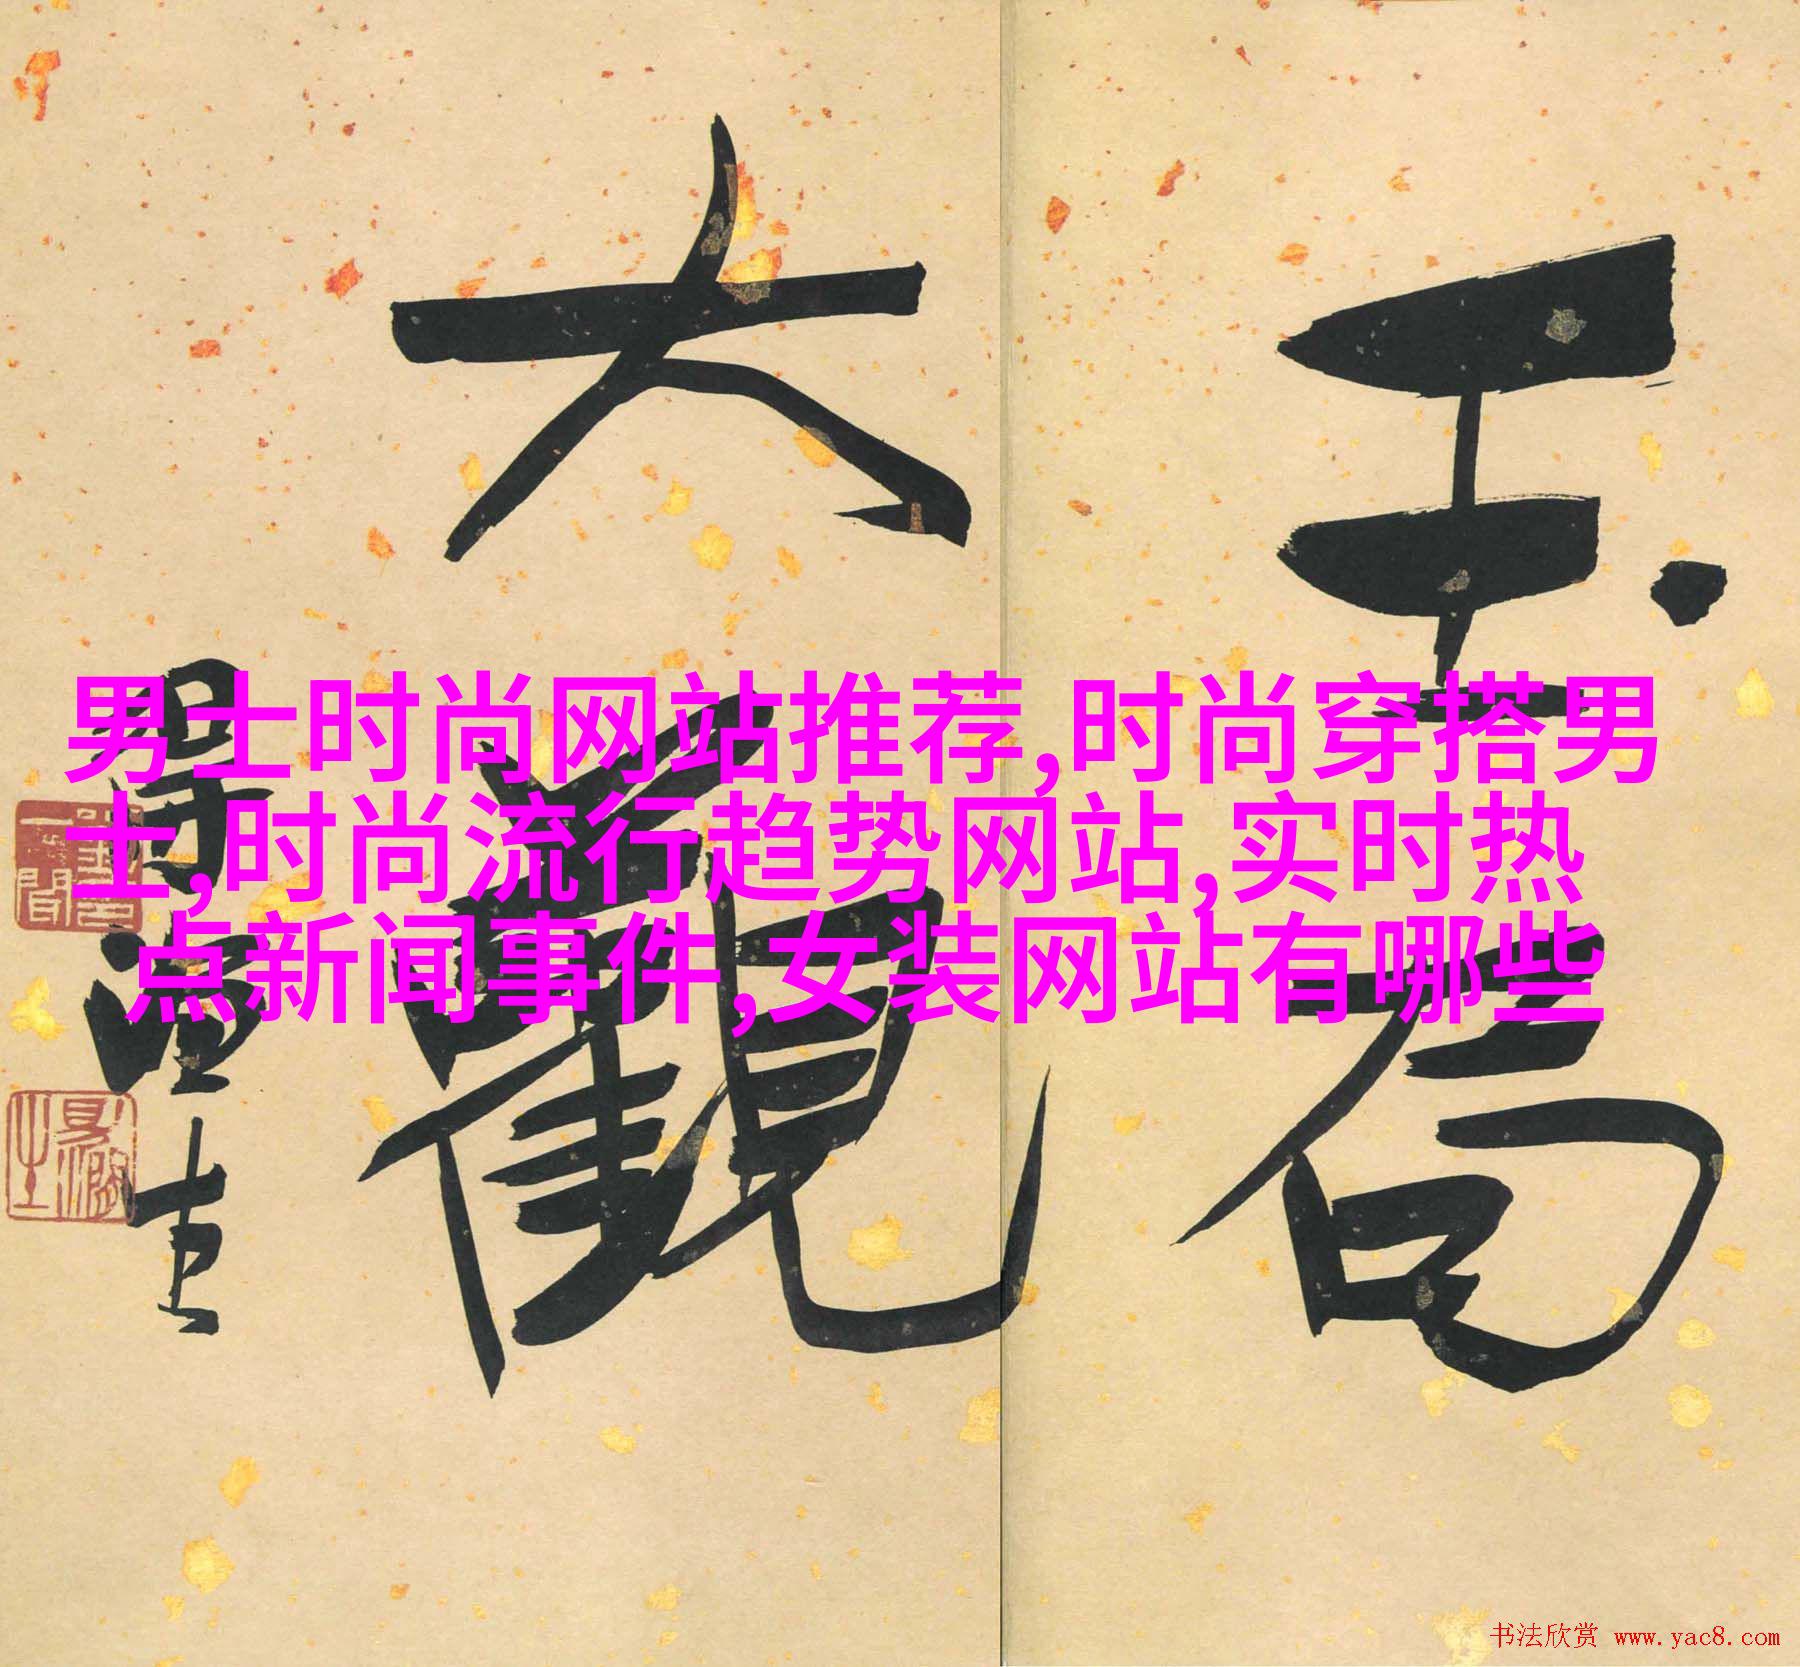 玉局
大觀
男士时尚网站推荐,时尚穿搭男
士,时尚流行趋势网站,实时热
点新闻事件,女装网站有哪些
书法欣赏 www.yac8.com